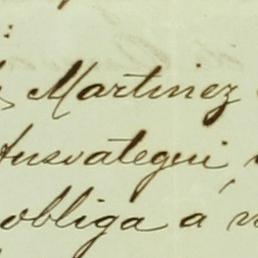 Martinez
Ausvategui
obliga á